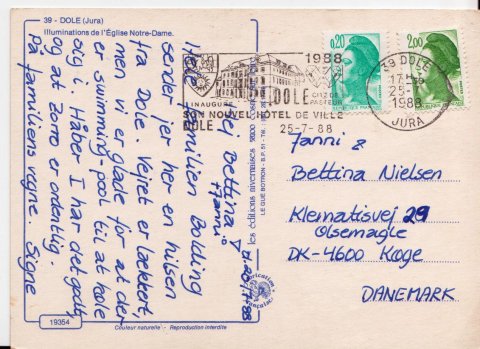 39 - DOLE (Jura)
Illuminations de l'Église Notre-Dame.
Hej Bettina
+ Janni
Hele familien Bolding
sender jer her en hilsen
fra Dole. Vejret er lækkert,
men vi er glade for at der
er swimming-pool til at køle
sig i. Håber I har det godt,
og at Zorro er ordentlig.
På familiens vegne. Signe
19354
Couleur naturelle - Reproduction interdite
les éditions nivernaises
LE GUE BOTRON - B.P. 51
1988
INAUGURE
DOLE
CITE DE
PASTEUR
SON NOUVEL HÔTEL DE VILLE
DOLE
25-7-88
0,20
2,00
39 DOLE
17H
25-7
1988
JURA
Janni &
Bettina Nielsen
Klematisvej 29
Ølsemagle
DK-4600 Køge
DANEMARK